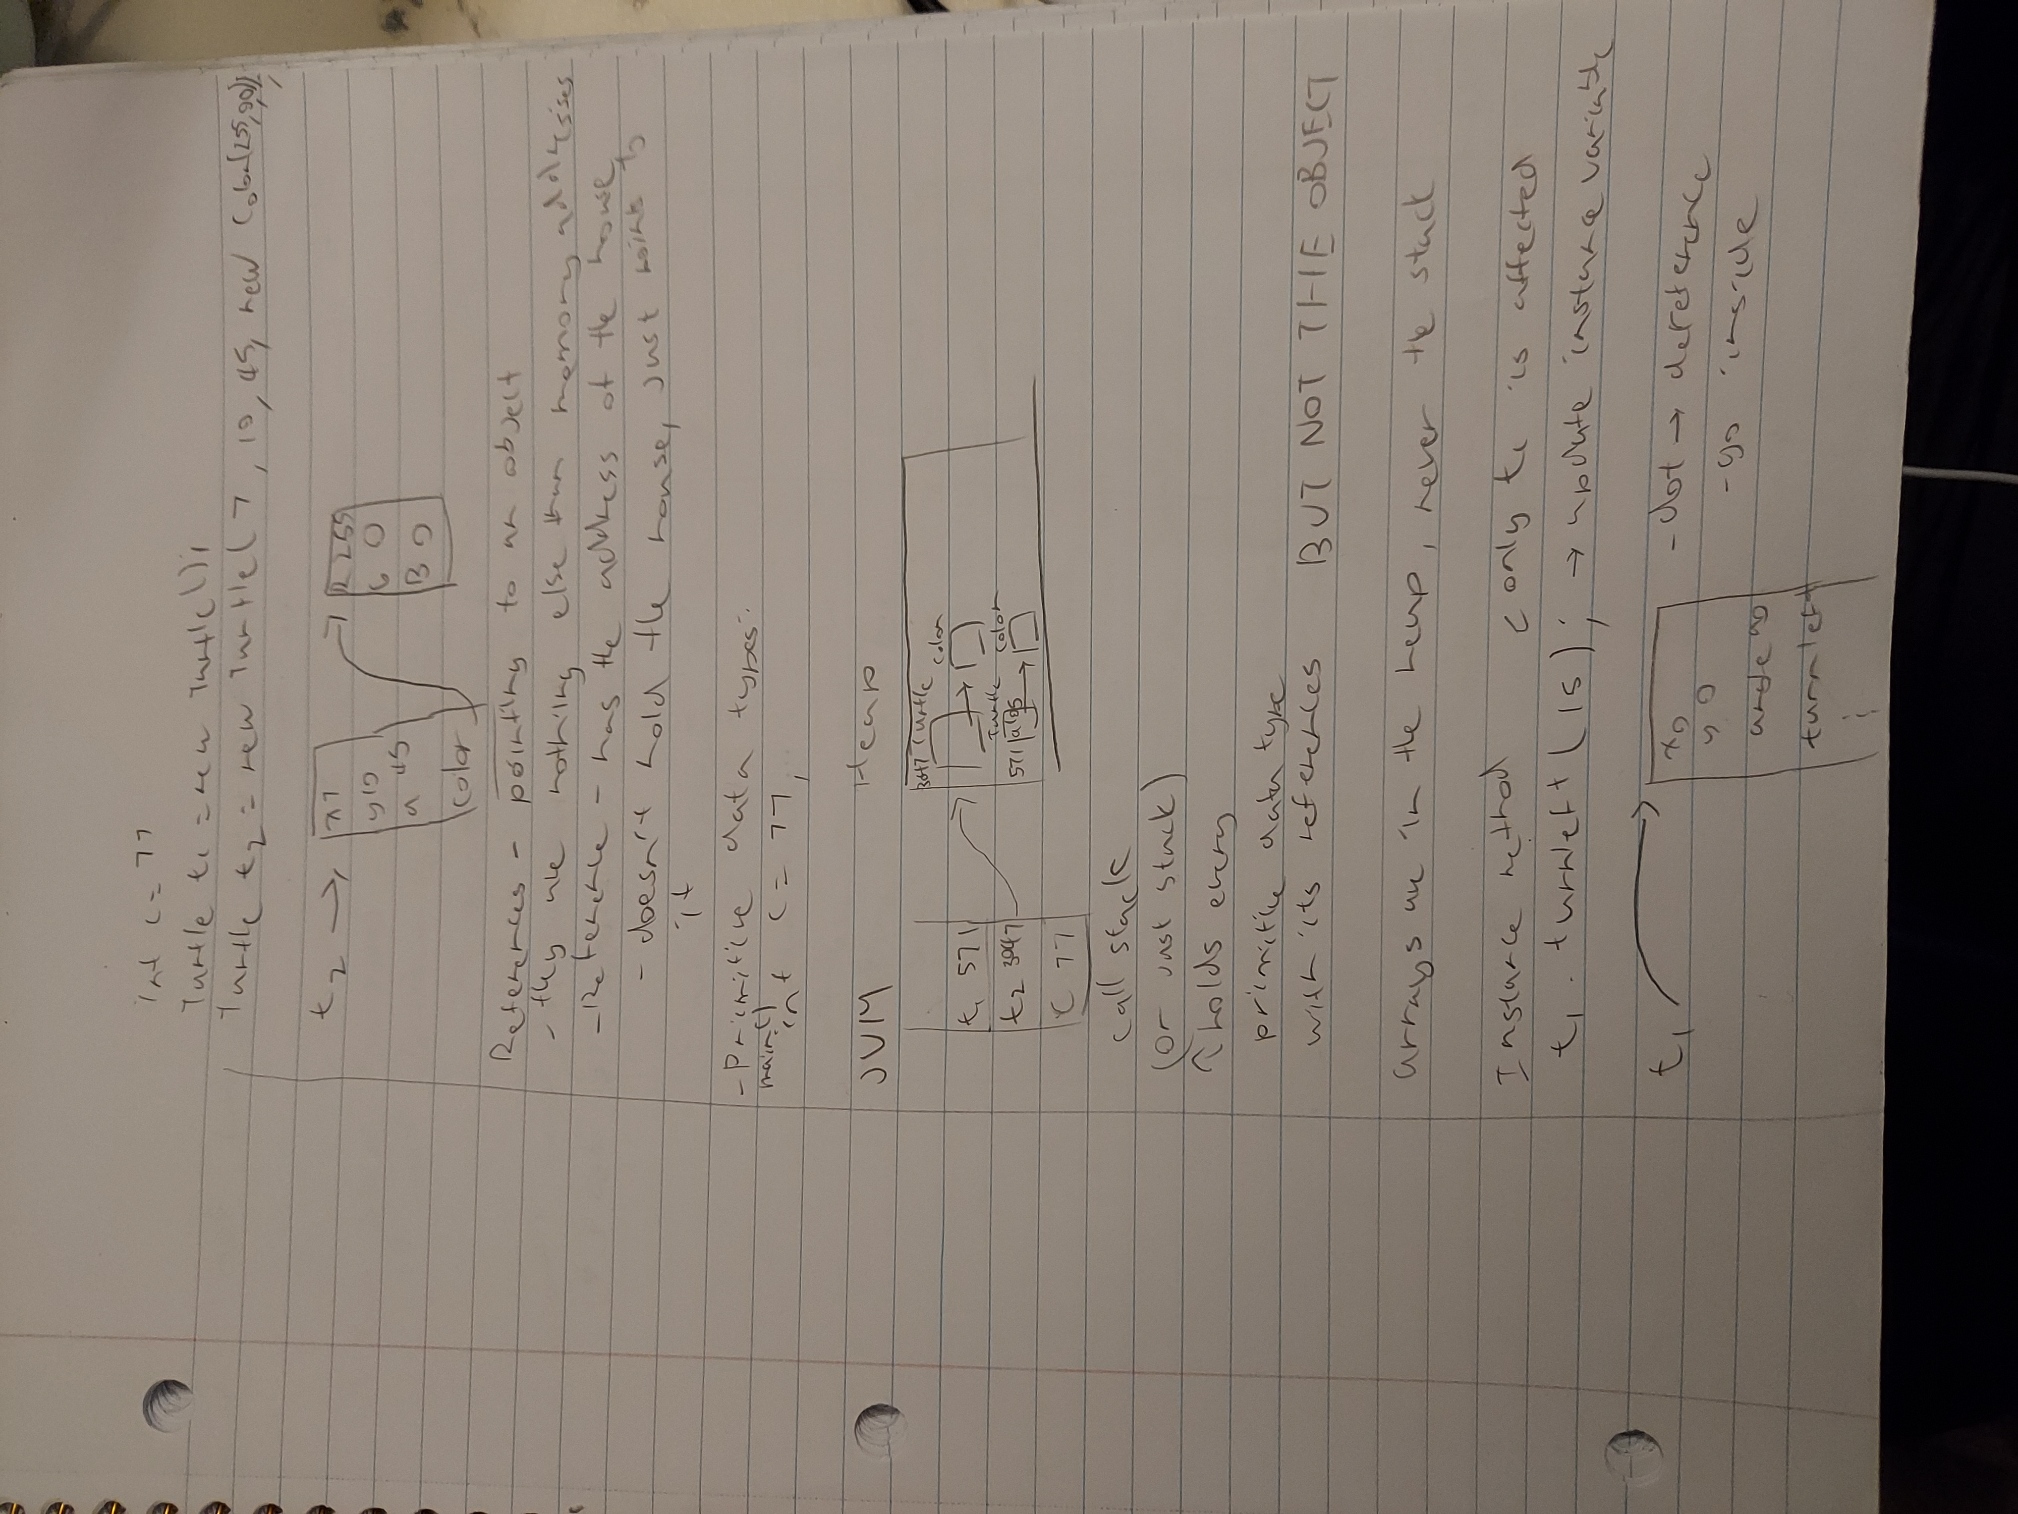 int c = 77
Turtle t1 = new Turtle();
Turtle t2 = new Turtle(7, 10, 45, new Color(255,0,0));
t2 →
x 7
y 10
a 45
color
R 255
G 0
B 0
References - pointing to an object
- they are nothing else than memory addresses
- Reference - has the address of the house
- doesn't hold the house, just points to
it
- Primitive data types:
main()
int c = 77;
JVM Heap
t1 571
t2 3047
c 77
3047 Turtle color
Turtle color
571
call stack
(or just stack)
holds every
primitive data type
with its references BUT NOT THE OBJECT
arrays are in the heap, never the stack
Instance method only t1 is affected
t1.turnleft(15); → update instance variable
t1
x 0
y 0
turnleft
- dot → dereference
- go inside